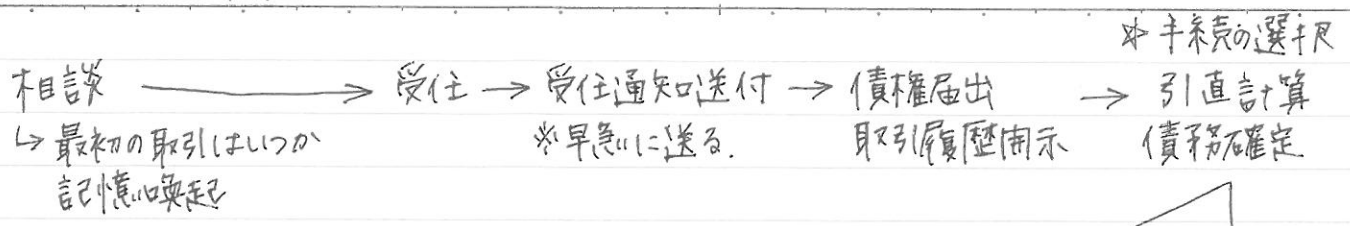 ※手続の選択
相談 → 受任 → 受任通知送付 → 債権届出 → 引直計算
↳ 最初の取引はいつか ※早急に送る. 取引履歴開示 債務確定
記憶喚起